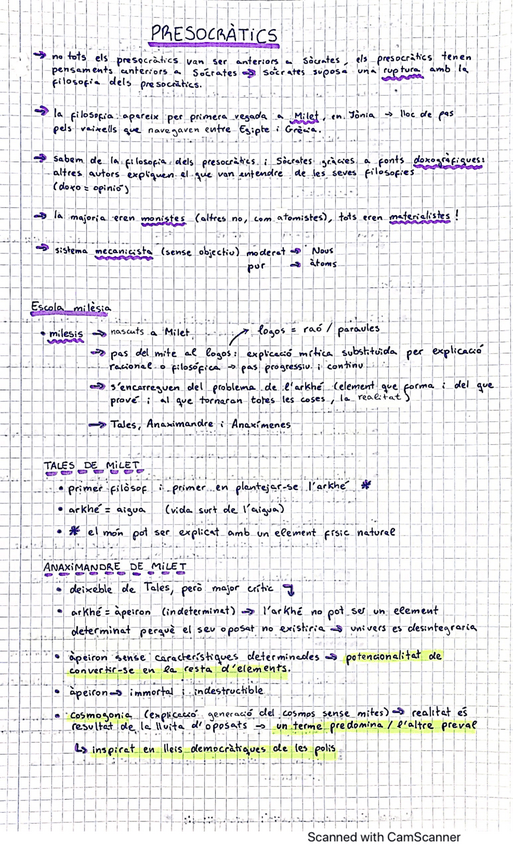 PRESOCRÀTICS
→ no tots els presocràtics van ser anteriors a Sòcrates, els presocràtics tenen
pensaments anteriors a Sòcrates → sòcrates suposa una ruptura amb la
filosofia dels presocràtics.
→ la filosofia apareix per primera vegada a Milet, en Jònia → lloc de pas
pels vaixells que navegaven entre Egipte i Grècia.
→ sabem de la filosofia dels presocràtics i Sòcrates gràcies a fonts doxogràfiques:
altres autors expliquen el que van entendre de les seves filosofies
(doxo = opinió)
→ la majoria eren monistes (altres no, com atomistes), tots eren materialistes!
→ sistema mecanicista (sense objectiu) moderat → Nous
pur → àtoms
Escola milèsia
• milesis → nascuts a Milet
logos = raó / paraules
→ pas del mite al logos: explicació mítica substituïda per explicació
racional o filosòfica → pas progressiu i continu
→ s'encarreguen del problema de l'arkhé (element que forma i del que
prové i al que tornaran totes les coses, la realitat)
→ Tales, Anaximandre i Anaxímenes
TALES DE MILET
• primer filòsof i primer en plantejar-se l'arkhé *
• arkhé = aigua (vida surt de l'aigua)
• * el món pot ser explicat amb un element físic natural
ANAXIMANDRE DE MILET
• deixeble de Tales, però major crític
• arkhé = àpeiron (indeterminat) → l'arkhé no pot ser un element
determinat perquè el seu oposat no existiria → univers es desintegraria
• àpeiron sense característiques determinades → potencionalitat de
convertir-se en la resta d'elements.
• àpeiron → immortal i indestructible
• cosmogonia (explicació generació del cosmos sense mites) → realitat és
resultat de la lluita d'oposats → un terme predomina / l'altre preval
↳ inspirat en lleis democràtiques de les polis
Scanned with CamScanner